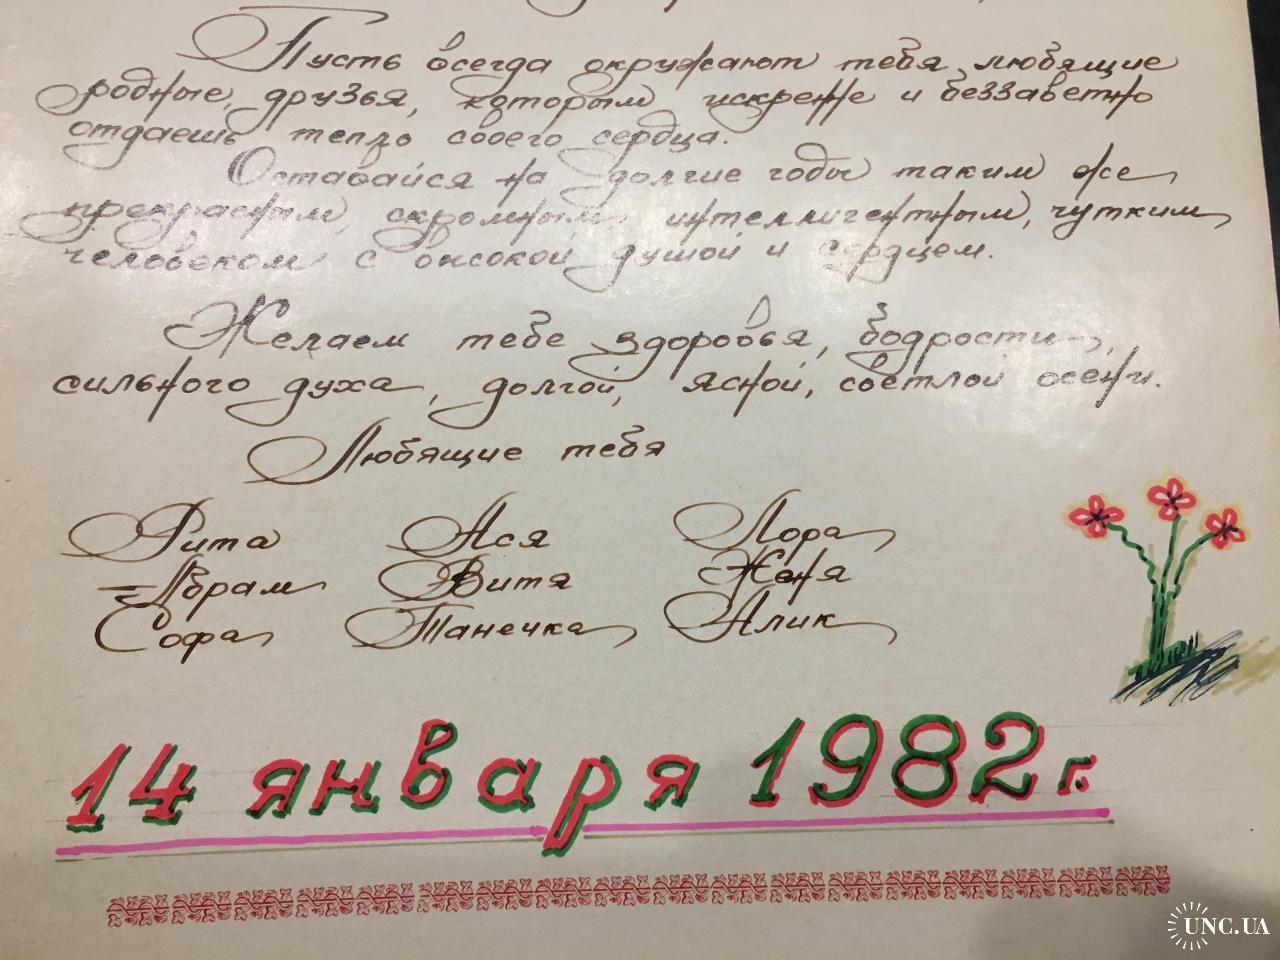 Пусть всегда окружают тебя любящие
родные, друзья, которым искренне и беззаветно
отдаешь тепло своего сердца.
Оставайся на долгие годы таким же
прекрасным, скромным, интеллигентным, чутким
человеком с высокой душой и сердцем.
Желаем тебе здоровья, бодрости,
сильного духа, долгой, ясной, светлой осени.
Любящие тебя
Рита Ася Лора
Абрам Витя Женя
Софа Танечка Алик
14 января 1982 г.
UNC.UA